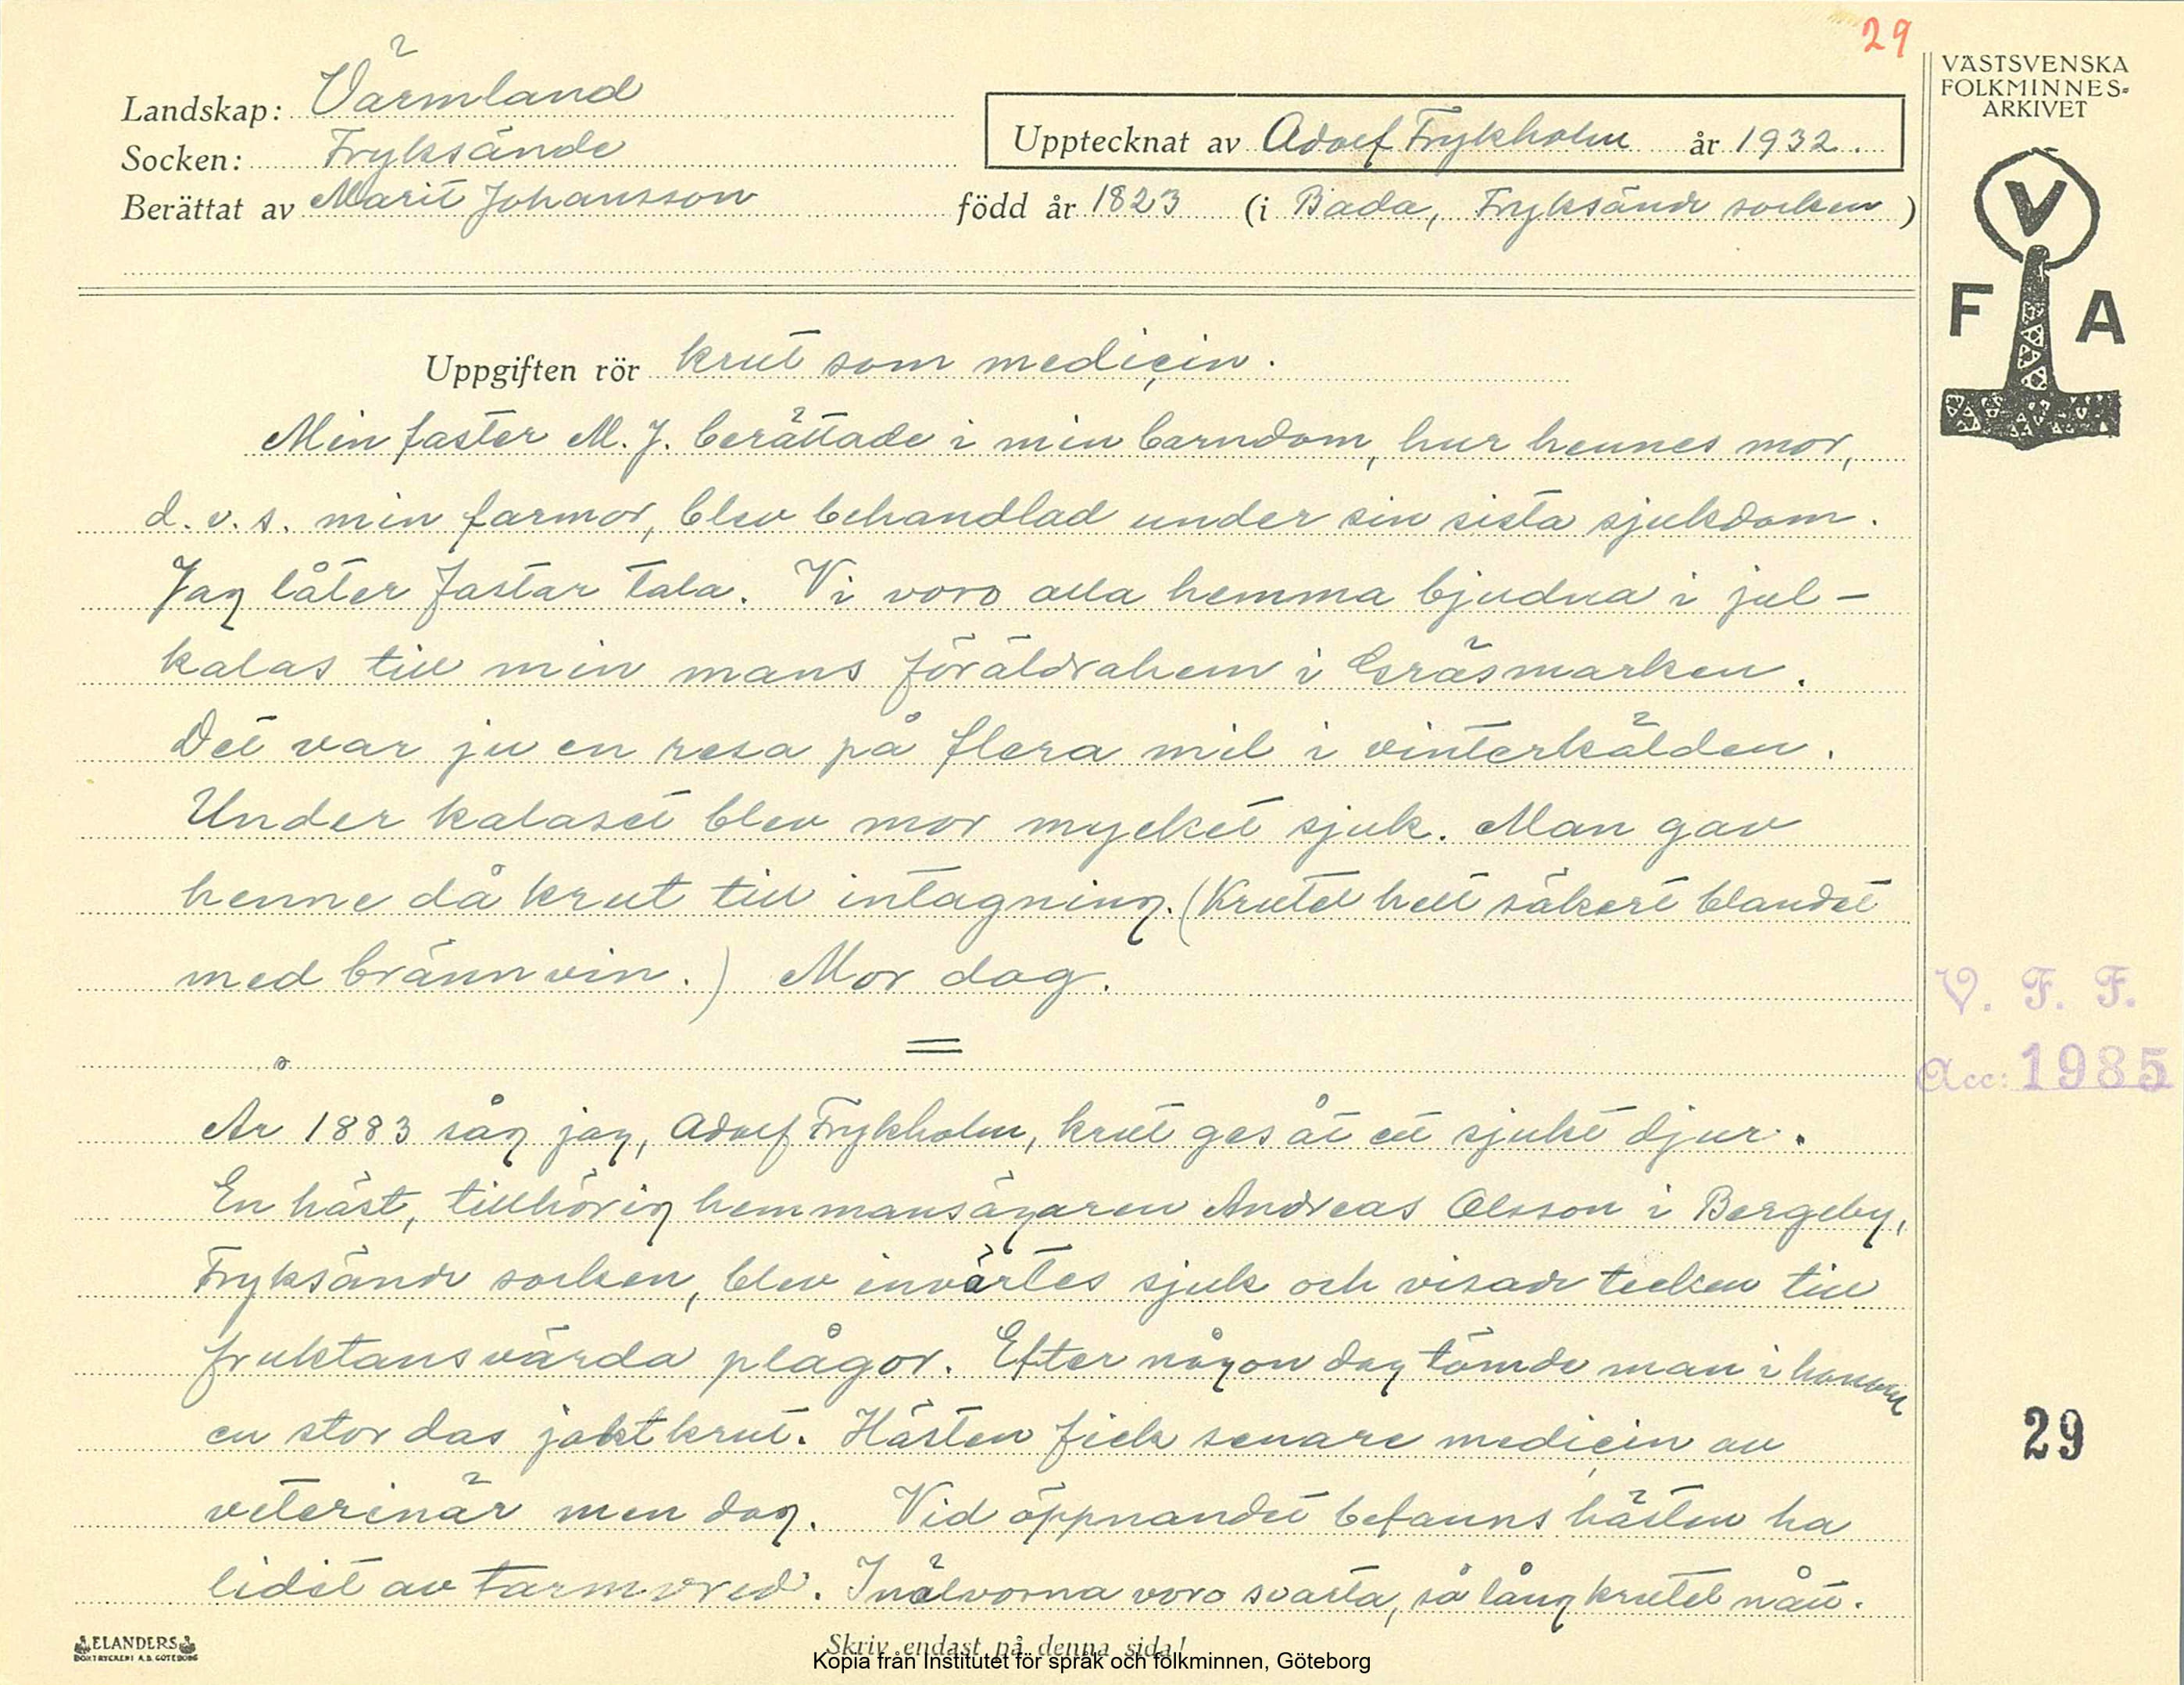 29
VÄSTSVENSKA
FOLKMINNES-
ARKIVET
Landskap: Värmland
Socken: Fryksände
Upptecknat av Adolf Frykholm år 1932.
Berättat av Marit Johansson född år 1823 (i Bada, Fryksände socken)
V
F A
Uppgiften rör krut som medicin.
Min faster M. J. berättade i min barndom, hur hennes mor,
d. v. s. min farmor, blev behandlad under sin sista sjukdom.
Jag låter fastar tala. Vi voro alla hemma bjudna i jul-
kalas till min mans föräldrahem i Gräsmarken.
Det var ju en resa på flera mil i vinterkälden.
Under kalaset blev mor mycket sjuk. Man gav
henne då krut till intagning. (Krutet helt säkert blandet
med brännvin.) Mor dog.
V. F. F.
Acc: 1985
År 1883 såg jag, Adolf Frykholm, krut ges åt ett sjukt djur.
En häst, tillhörig hemmansägaren Andreas Olsson i Bergeby,
Fryksände socken, blev invärtes sjuk och visade tecken till
fruktansvärda plågor. Efter någon dag tömde man i honom
en stor dos jaktkrut. Hästen fick senare medicin av
29
veterinär men dog. Vid öppnandet befanns hästen ha
lidit av tarmvred. Inälvorna voro svarta, så långt krutet nått.
ELANDERS
BOKTRYCKERI A.B. GÖTEBORG
Skriv endast på denna sida!
Kopia från Institutet för språk och folkminnen, Göteborg